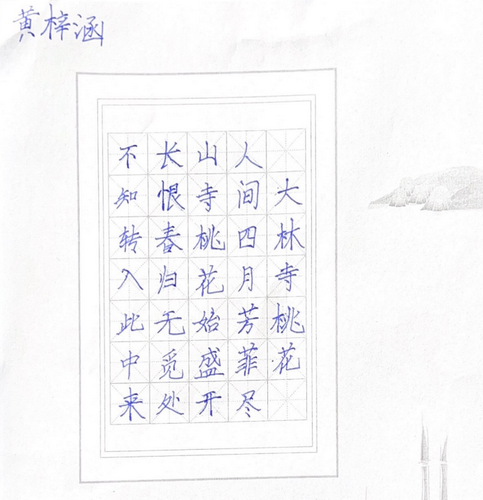 黄梓涵
大林寺桃花
人间四月芳菲尽
山寺桃花始盛开
长恨春归无觅处
不知转入此中来